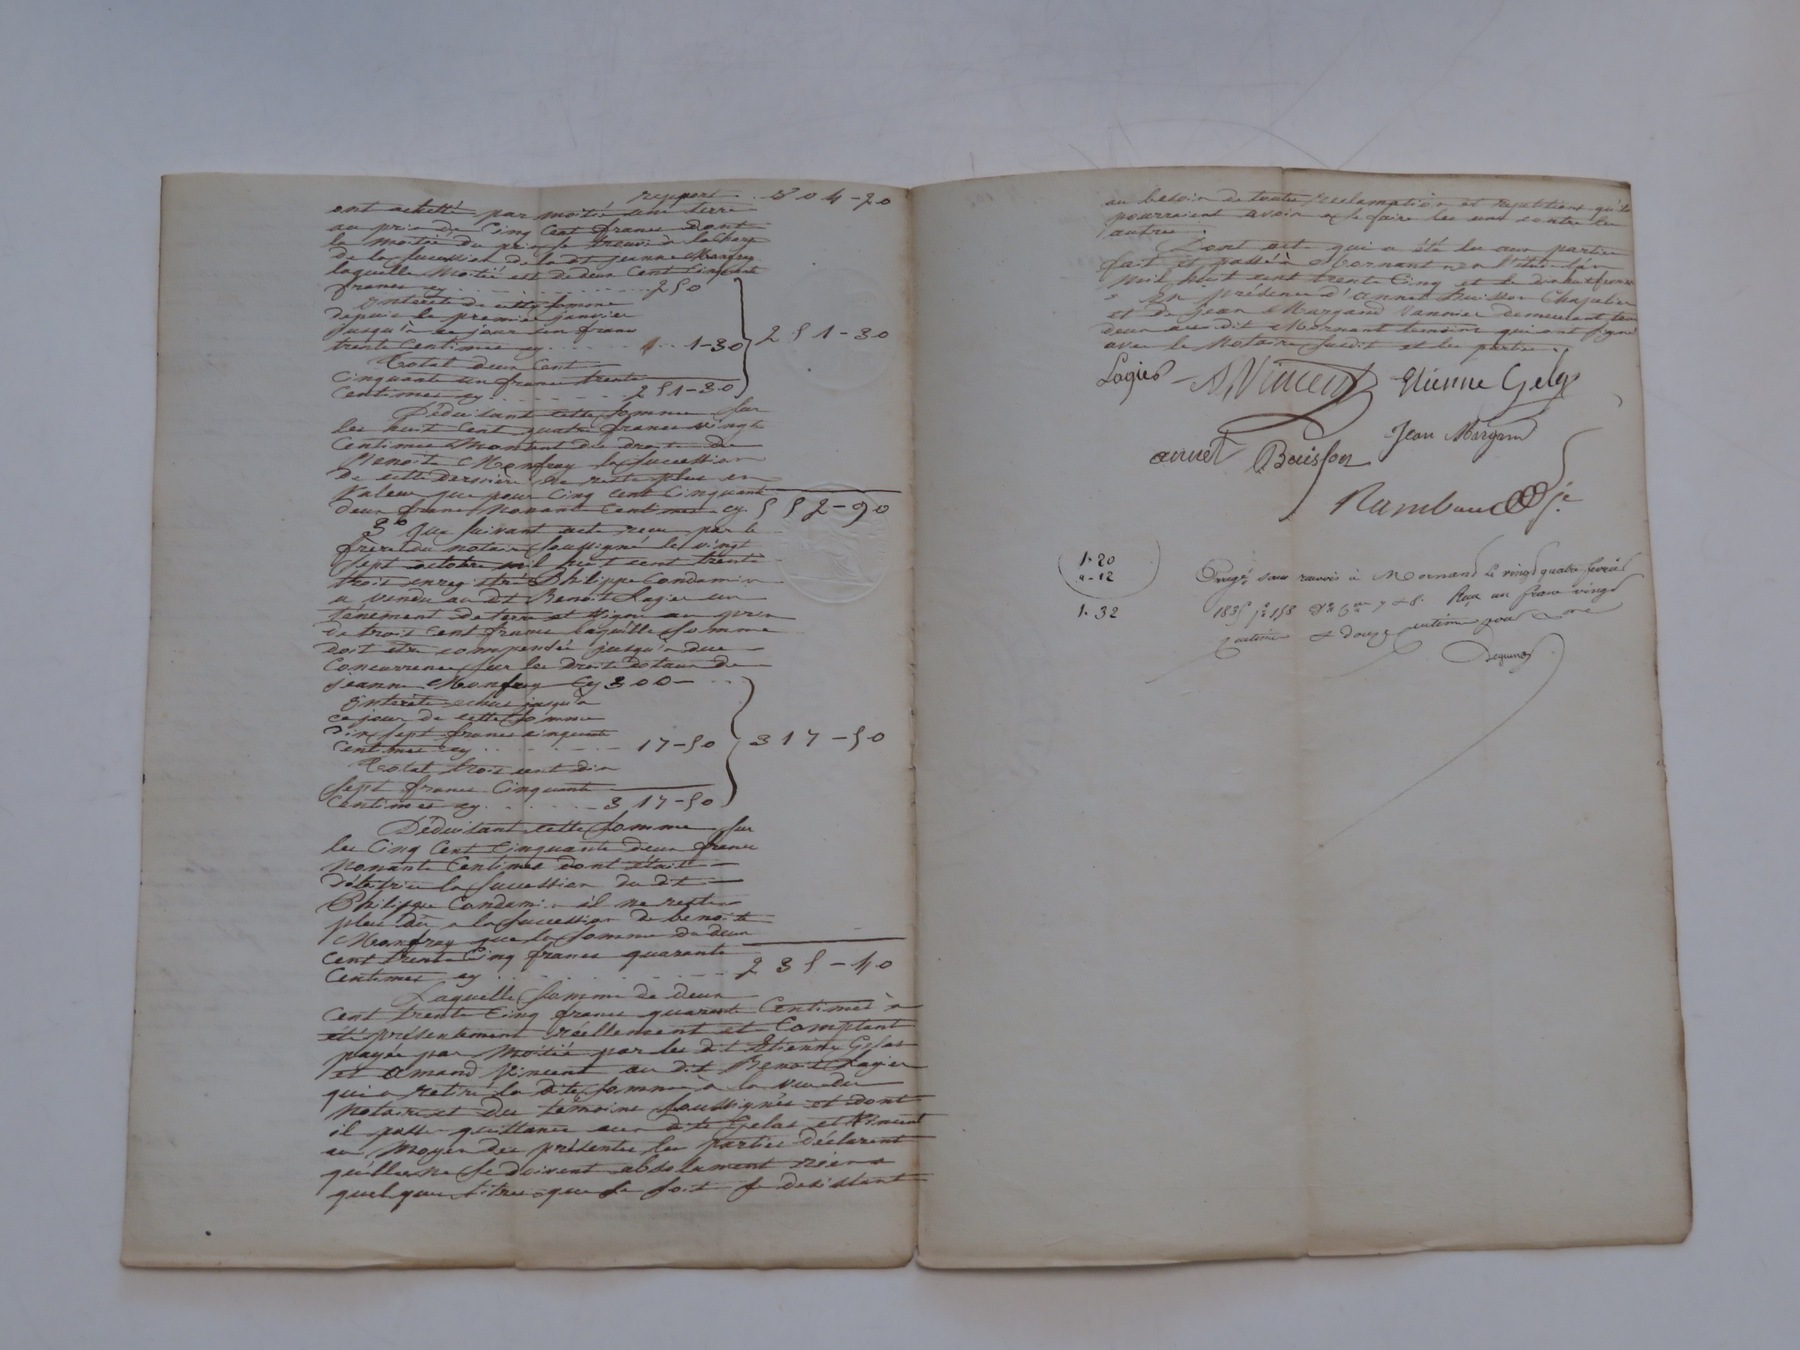 report . 804-20
ont acheté par moitié une terre
au prix de Cinq Cent francs dont
la moitié du prix se trouve à la charge
de la succession de la dt Jeanne Monfray
laquelle moitié est de deux Cent Cinquante
francs cy . . . . . . 250
Interets de cette somme
depuis le premier janvier
jusqu'à ce jour un franc
trente Centimes cy . . . . 1-30
251-30
Total deux Cent
Cinquante un francs trente
Centimes cy . . . . . . 251-30
Déduisant cette somme sur
les huit Cent quatre francs vingt
Centimes Montant des droits de
Benoite Monfray la succession
de cette dernière ne reste plus en
valeur que pour Cinq Cent Cinquante
deux francs Nonante Centimes cy. 552-90
3° Que suivant acte reçu par le
frère du notaire soussigné le vingt
sept octobre mil huit cent trente
trois enregistré Philippe Condamin
a vendu au dt Benoit Lagier un
tènement de terre et vigne au prix
de trois Cent francs laquelle somme
doit etre compensée jusqu'à due
Concurrence sur les droits dotaux de
Jeanne Monfray Cy 300-
Interets echus jusqu'à
ce jour de cette somme
dix sept francs cinquante
Centimes cy . . . . . 17-50
317-50
Total trois cent dix
sept francs Cinquante
Centimes cy . . . . . 317-50
Déduisant cette somme sur
les Cinq Cent Cinquante deux francs
Nonante Centimes dont était
débitrice la succession du dit
Philippe Condamin il ne reste
plus dû à la succession de benoite
Monfray que la somme de deux
cent trente Cinq francs quarante
Centimes cy . . . . . . 235-40
Laquelle somme de deux
Cent trente Cinq francs quarante Centimes à
été présentement réellement et Comptant
payée par Moitié par les dit Etienne Gelas
et Amand Vincent au dit Benoit Lagier
qui a retiré la dte somme à la vue du
Notaire et des témoins soussignés et dont
il passe quittance aux dits Gelas et Vincent
au Moyen des présentes les parties déclarent
qu'elles ne se doivent absolument rien à
quelques titres que ce soit se desistant
au besoin de toutes réclamations et répétitions qu'ils
pourraient avoir à se faire les uns contre les
autres.
Dont acte qui a été lu aux parties
fait et passé à Mornant en l'étude l'an
Mil huit cent trente Cinq et le dix huit fevrier
en présence d'annet Buisson Chapelier
et de Jean Margand Vannier demeurant tous
deux au dit Mornant temoins qui ont signé
avec le Notaire susdit et les parties.
Lagier A Vincent Etienne Gelas
Jean Margand
annet Buisson
Rambaud
1.20
"-12
1.32
Enregé sans renvois à Mornand le vingt quatre fevrier
1835 fo 158 Vo Ces 7 et 8. Reçu un franc vingt
centimes et douze centimes pour